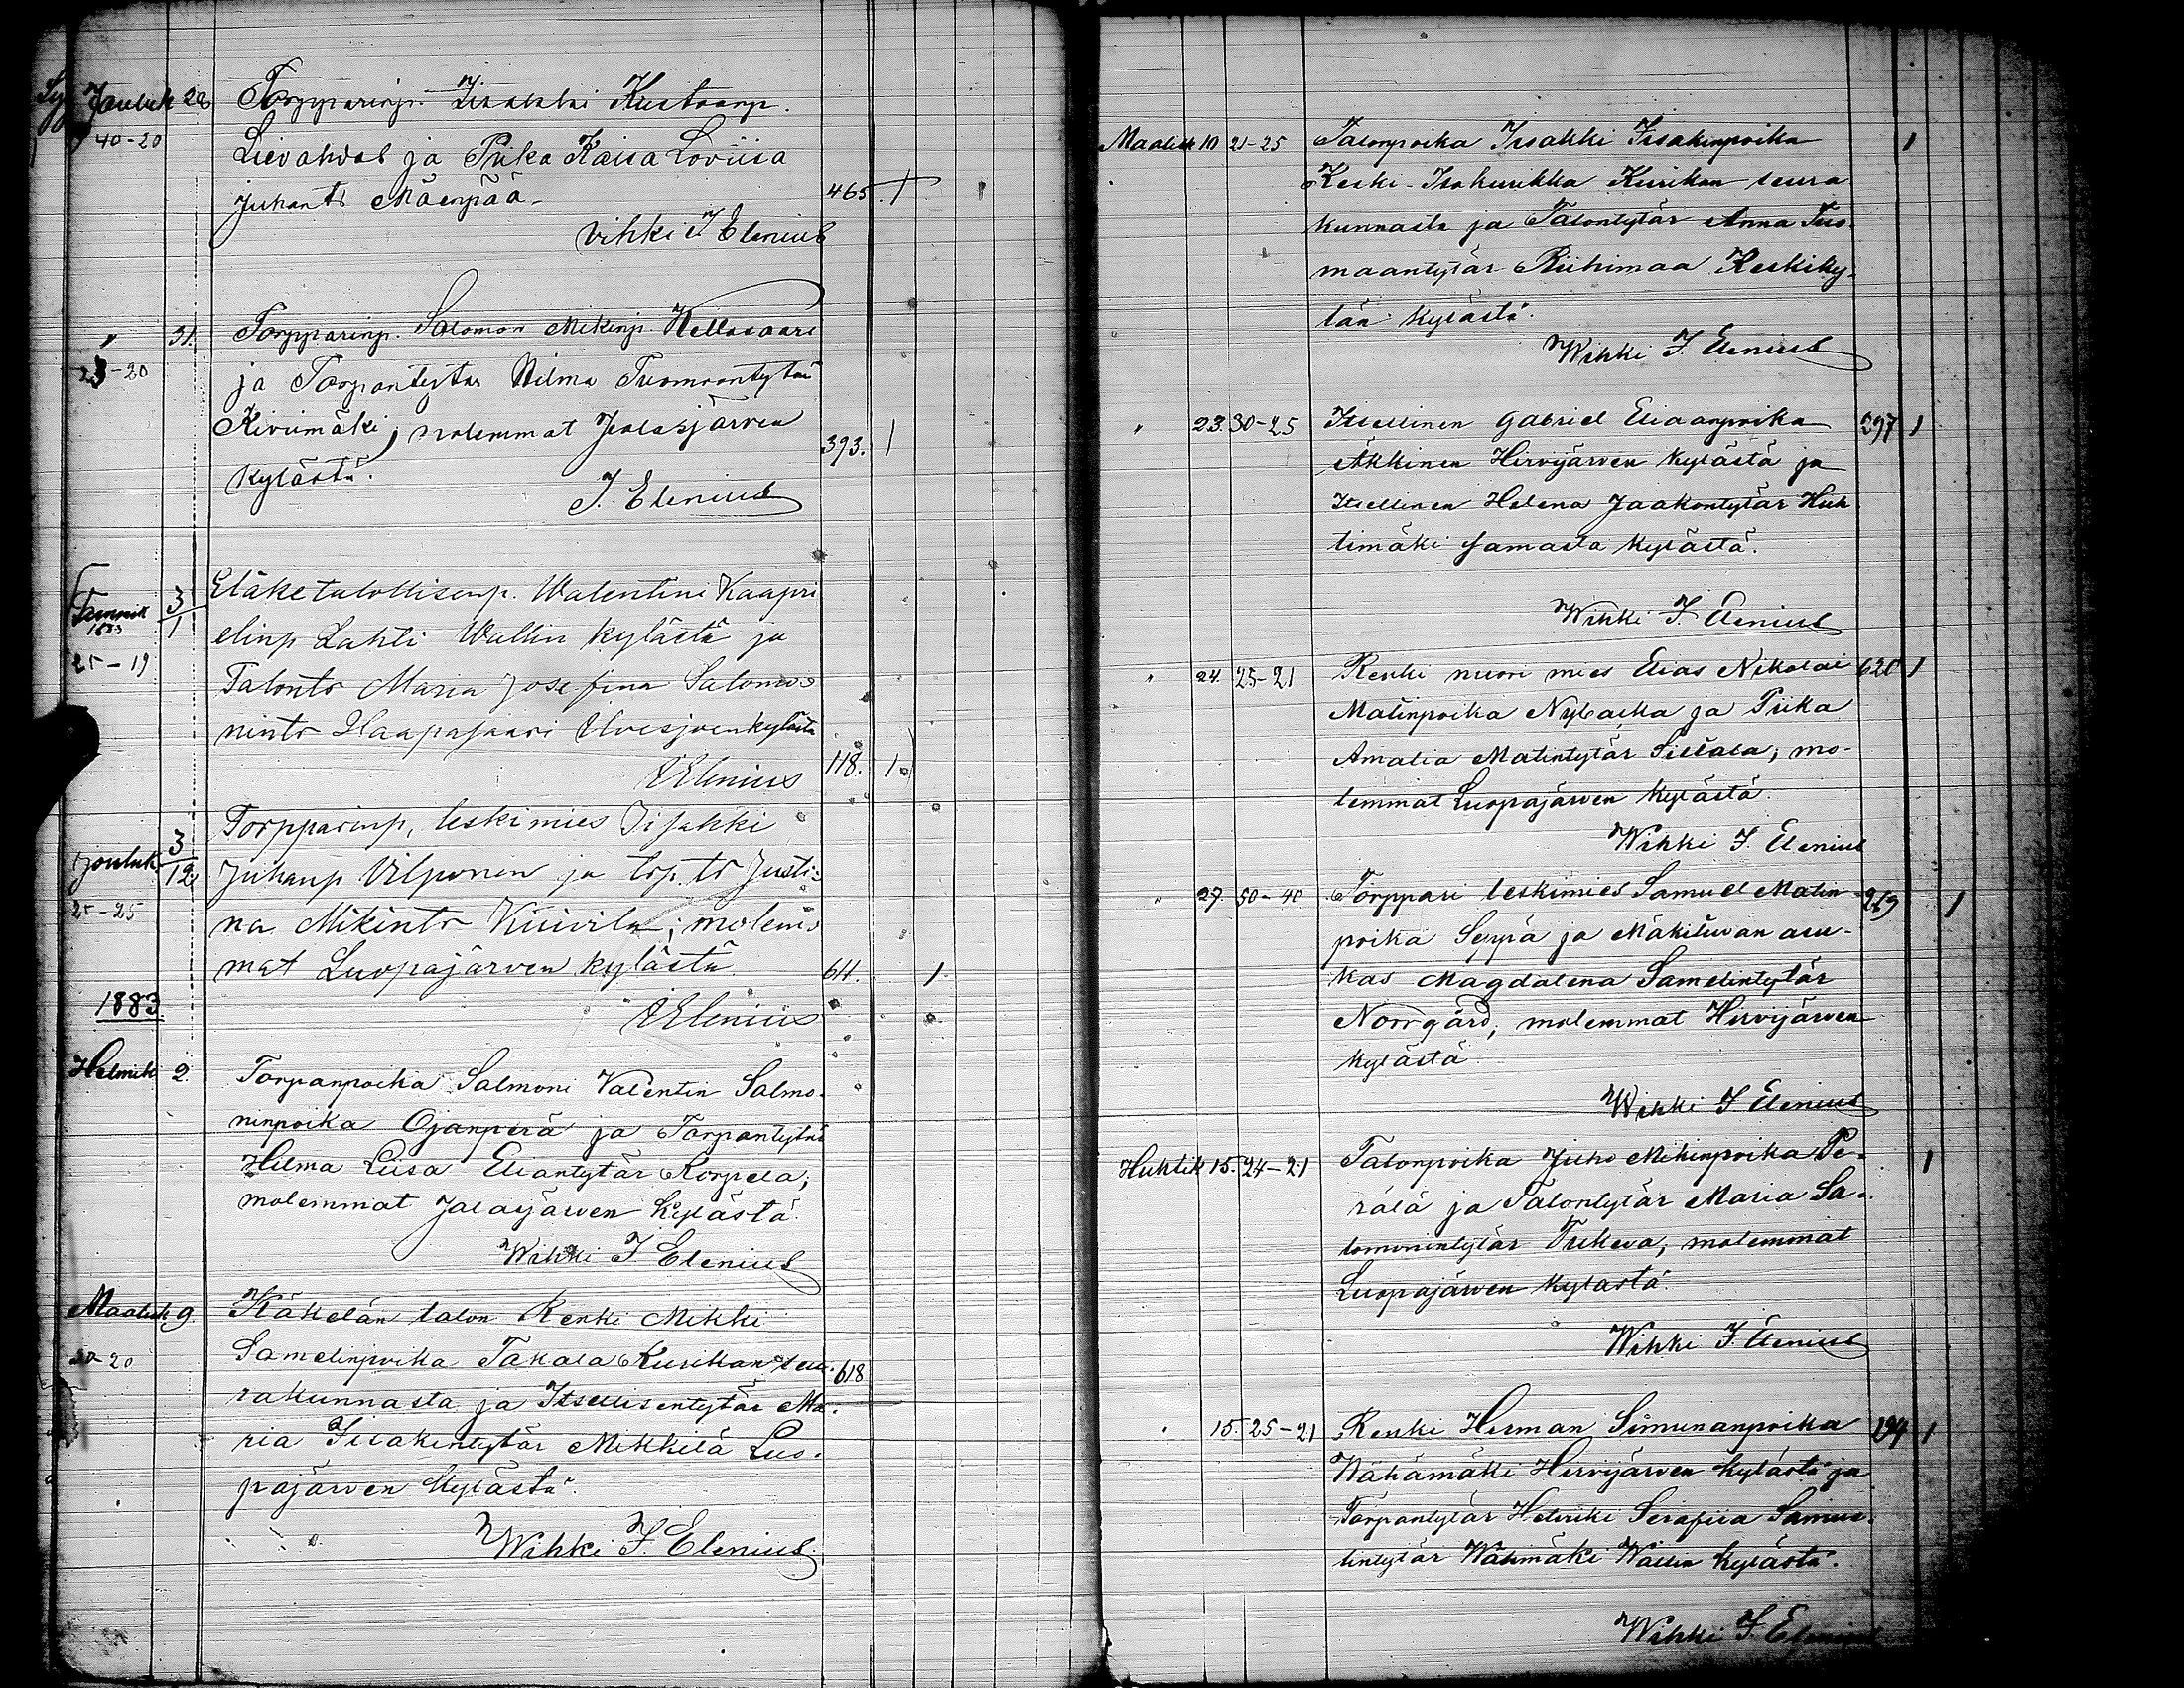 Jouluk 28 Torpparinp. Iisakki Kustaanp.
40-20
Lievahdal ja Piika Kaisa Loviisa
Juhantr Mäenpää 465. 1
vihki J Elenius
" 31. Torpparinp. Salomon Mikinp. Kellosaari
23-20
ja Torpantytär Hilma Tuomaantytär
Kivimäki, molemmat Jalasjärven 393. 1
kylästä.
J. Elenius
Tammik 1883 3/1 Eläketalollisenp. Walentini Kaapri
elinp Lahti Wallin kylästä ja
25-19
Talontr Maria Josefina Salomo=
nintr Haapasaari Ilvesjoenkylästä
118. 1.
JElenius
Torpparinp, leskimies Iisakki
Jouluk. 3/12 Juhanp Vilponen ja torp.tr Justi=
25-25
na Mikintr Kiiivila; molem=
mat Luopajärven kylästä 611. 1.
1883. JElenius
Helmik 2. Torpanpoika Salmoni Valentin Salmo-
ninpoika Ojanperä ja Torpantytär
Hilma Liisa Eliantytär Korpela;
molemmat Jalasjärven kylästä.
Wihki J Elenius
Maalisk 9. Käkelän talon Renki Mikki
20-20 Samelinpoika Takala Kurikan seu- 618
rakunnasta ja Itsellisentytär Ma-
ria Iisakintytär Mikkilä Luo-
pajärven kylästä.
Wihki J. Elenius.
Maalisk 10 21-25 Talonpoika Iisakki Iisakinpoika 1
Keski-Isohurikka Kurikan seura
kunnasta ja Talontytär Anna Tuo-
maantytär Riihimaa Keskiky-
län kylästä.
Wihki J. Elenius
" 23. 30-25 Itsellinen Gabriel Eliaanpoika 297 1
Äkkinen Hirvijärven kylästä ja
Itsellinen Helena Jaakontytär Huh
timäki samasta kylästä.
Wihki J. Elenius
" 24. 25-21 Renki nuori mies Elias Nikolai 620 1
Matinpoika Nybacka ja Piika
Amalia Matintytär Sillala; mo-
lemmat Luopajärven kylästä.
Wihki J. Elenius
" 27. 50-40 Torppari leskimies Samuel Matin 269 1
poika Seppä ja Mäkituvan asu-
kas Magdalena Samelintytär
Norrgård, molemmat Hirvijärven
kylästä.
Wihki J Elenius
Huhtik 15. 24-21 Talonpoika Juho Mikinpoika Pe- 1
rälä ja Talontytär Maria Sa-
lomonintytär Tukeva, molemmat
Luopajärven kylästä.
Wihki J. Elenius
" 15. 25-21 Renki Herman Simunanpoika 194 1
Wähämäki Hirvijärven kylästä ja
Torpantytär Helviki Serafiia Samue-
lintytär Wälimäki Wallin kylästä.
Wihki J. Elenius